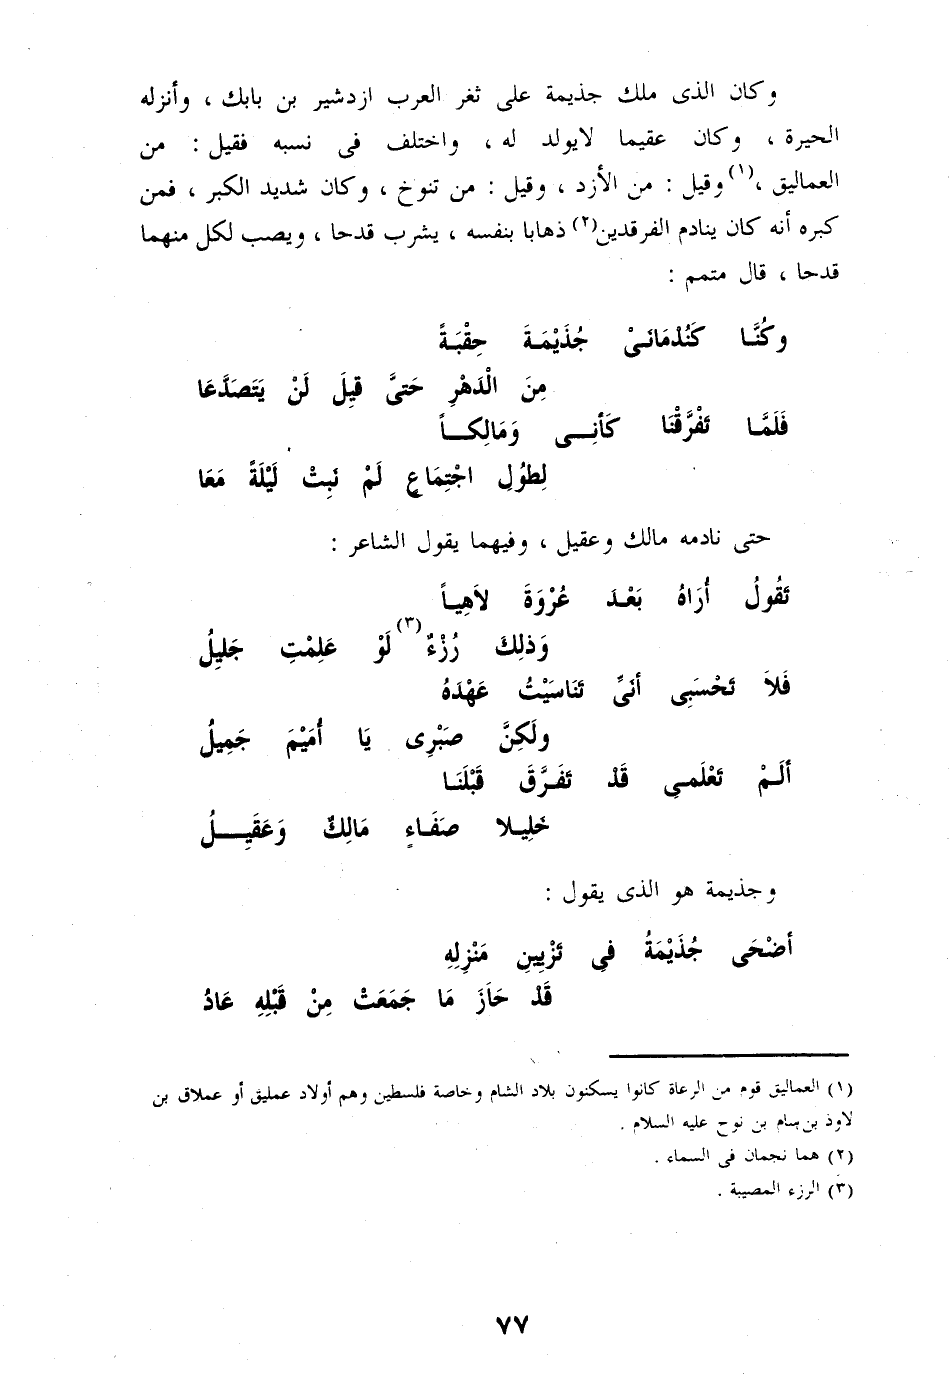 وكان الذى ملك جذيمة على ثغر العرب ازدشير بن بابك ، وأنزله
الحيرة ، وكان عقيما لايولد له ، واختلف فى نسبه فقيل : من
العماليق ،(١) وقيل : من الأزد ، وقيل : من تنوخ ، وكان شديد الكبر ، فمن
كبره أنه كان ينادم الفرقدين(٢) ذهابا بنفسه ، يشرب قدحا ، ويصب لكل منهما
قدحا ، قال متمم :
وكُنَّا كَنُدْمَانَىْ جُذَيْمَةَ حِقْبَةً
مِنَ الْدَهْرِ حَتىَّ قِيِلَ لَنْ يَتَصَدَّعَا
فَلَمَّا تَفْرَّقْنَا كَأنِى وَمَالِكاً
لِطوُلِ اجْتِمَاعٍ لَمْ نَبِتْ لَيْلَةً مَعَا
حتى نادمه مالك وعقيل ، وفيهما يقول الشاعر :
تَقُولُ أُرَاهُ بَعْدَ عُرْوَةَ لاَهِياً
وَذلِكَ رُزْءٌ(٣) لَوْ عَلِمْتِ جَلِيلُ
فَلاَ تَحْسَبِى أنىِّ تَنَاسَيْتُ عَهْدَهُ
ولَكِنَّ صَبْرِى يَا أُمَيْمَ جَمِيلُ
ألَمْ تَعْلَمىِ قَدْ تَفَرَّقَ قَبْلَنَا
خَلِيلا صَفَاءٍ مَالِكٌ وَعَقَيِلُ
وجذيمة هو الذى يقول :
أضْحَى جُذَيْمَةُ فىِ تَزْيِينِ مَنْزِلِهِ
قَدْ حَازَ مَا جَمَعَتْ مِنْ قَبْلِهِ عَادُ
(١) العماليق قوم من الرعاة كانوا يسكنون بلاد الشام وخاصة فلسطين وهم أولاد عمليق أو عملاق بن
لاوذ بن سام بن نوح عليه السلام .
(٢) هما نجمان فى السماء .
(٣) الرزء المصيبة .
٧٧